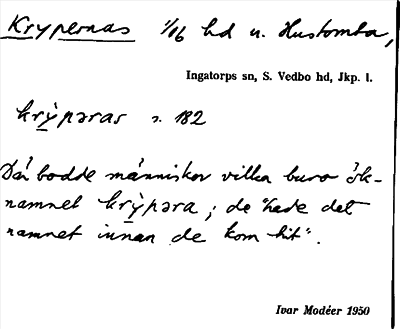 Krypernas 1/06 hd u. Hustomta,
Ingatorps sn, S. Vedbo hd, Jkp. l.
krỳpəras s. 182
Där bodde människor vilka buro ök-
namnet krỳpəra; de "hade det
namnet innan de kom hit".
Ivar Modéer 1950